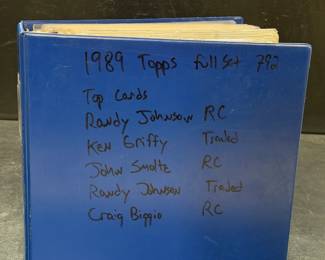 1989 Topps full set 792
Top Cards
Randy Johnson RC
Ken Griffy Traded
John Smoltz RC
Randy Johnson Traded
Craig Biggio RC